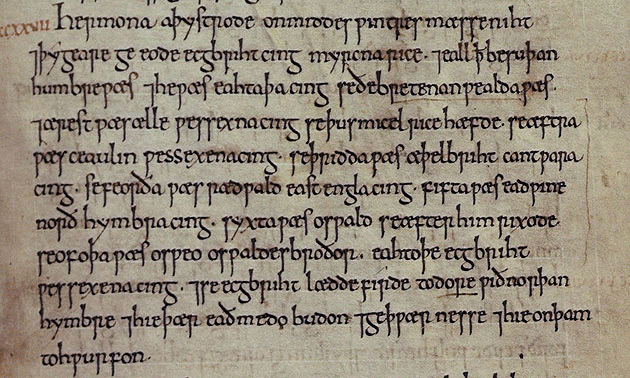 cxxvii Her mona aþystrode on middesƿintres mæsseniht
⁊ þy geare ge eode ecgbriht cing myrcna rice · ⁊ eall ꝥ be suþan
humbre ƿæs ⁊ he ƿæs eahtaþa cing se ðe bretenanƿealda ƿæs ·
⁊ ærest ƿæs ælle ƿessexna cing se þus micel rice hæfde · se æftra
ƿæs ceaulin ƿessexena cing · se þridda ƿæs æþelbriht cantƿara
cing · se feorða ƿæs rædƿald east engla cing · fifta ƿæs eadƿine
norð hymbra cing · syxta ƿæs osƿald se æfter him rixode
seofoþa ƿæs osƿeo osƿaldes broðor · eahtoþe ecgbriht
ƿessexena cing · ⁊ se ecgbriht lædde firde to dore ƿið norþan
hymbre ⁊ hie þær eaðmedo budon ⁊ geþƿærnesse ⁊ hie on þam
tohƿurfon ·